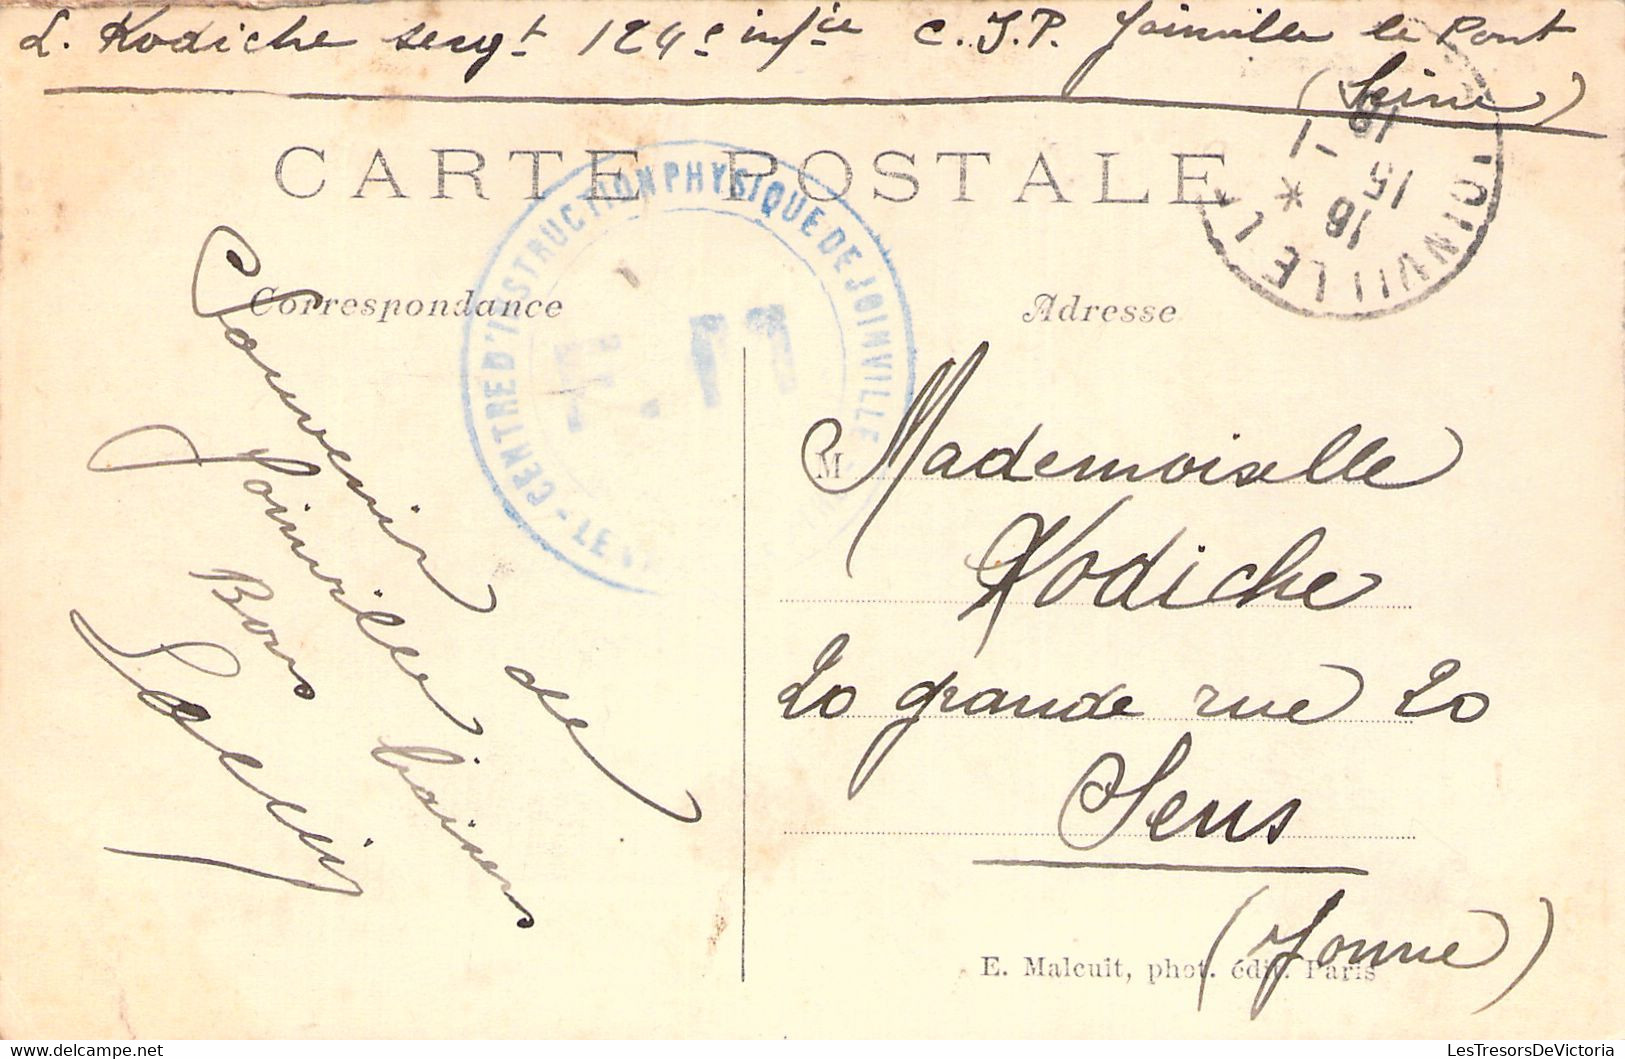 L. Kodiche sergt 124e infie C.I.P. Joinville le Pont
(Seine)
CARTE POSTALE
CENTRE D'INSTRUCTION PHYSIQUE DE JOINVILLE - LE
JOINVILLE
18
15 -1
16
Correspondance
Adresse
Souvenir de
Joinville
Bons baisers
M
Mademoiselle
Kodiche
20 grande rue 20
Sens
(Yonne)
E. Malcuit, phot. édit. Paris
LesTresorsDeVictoria